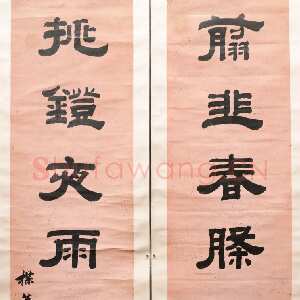 翦韭春塍
挑鐙夜雨
ShufawangCN